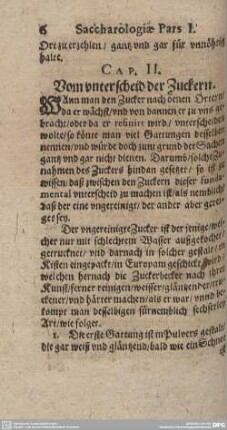 6 Saccharologiæ Pars I.
Ort zu erzehlen / gantz vnd gar für vnnöhtig
halte.
CAP. II.
Vom vnterscheid der Zuckern.
WAnn man den Zucker nach denen Oertern
da er wächst / vnd von dannen er zu vns ge-
bracht / oder da er refinirt wird / vnterscheiden
wolte / so könte man viel Gattungen desselben
nennen / vnd würde doch zum grund der Sachen
gantz vnd gar nicht dienen. Darumb / solche Zu-
nahmen des Zuckers hindan gesetzet / so ist zu
wissen / daß zwischen den Zuckern dieser funda-
mental vnterscheid zu machen ist / als nemblich
daß der eine vngereiniget / der ander aber gerei-
get sey.
Der vngereinigte Zucker ist der jenige / wel-
cher nur mit schlechtem Wasser außgekochet /
getrucknet / vnd darnach in solcher gestalt / in
Kisten eingepackt / in Europam geschickt wird /
welchen hernach die Zuckerbecker nach ihrer
Kunst / ferner reinigen / weisser / gläntzender / tru-
ckener / vnd härter machen / als er war / vnnd be-
kompt man desselbigen fürnemblich sechserley
Art / wie folget.
1. Die erste Gattung ist in Pulvers gestalt /
die gar weiß vnd gläntzend / bald wie ein Schnee